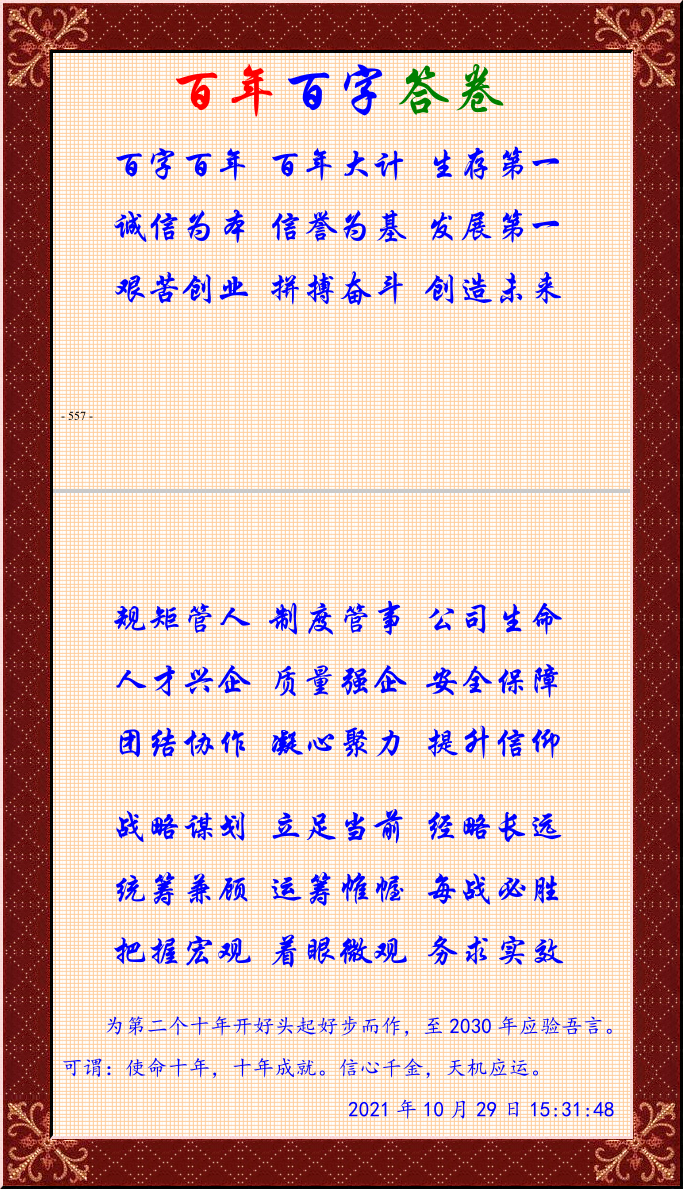 百年百字答卷
百字百年 百年大计 生存第一
诚信为本 信誉为基 发展第一
艰苦创业 拼搏奋斗 创造未来
- 557 -
规矩管人 制度管事 公司生命
人才兴企 质量强企 安全保障
团结协作 凝心聚力 提升信仰
战略谋划 立足当前 经略长远
统筹兼顾 运筹帷幄 每战必胜
把握宏观 着眼微观 务求实效
为第二个十年开好头起好步而作，至 2030 年应验吾言。
可谓：使命十年，十年成就。信心千金，天机应运。
2021 年 10 月 29 日 15:31:48